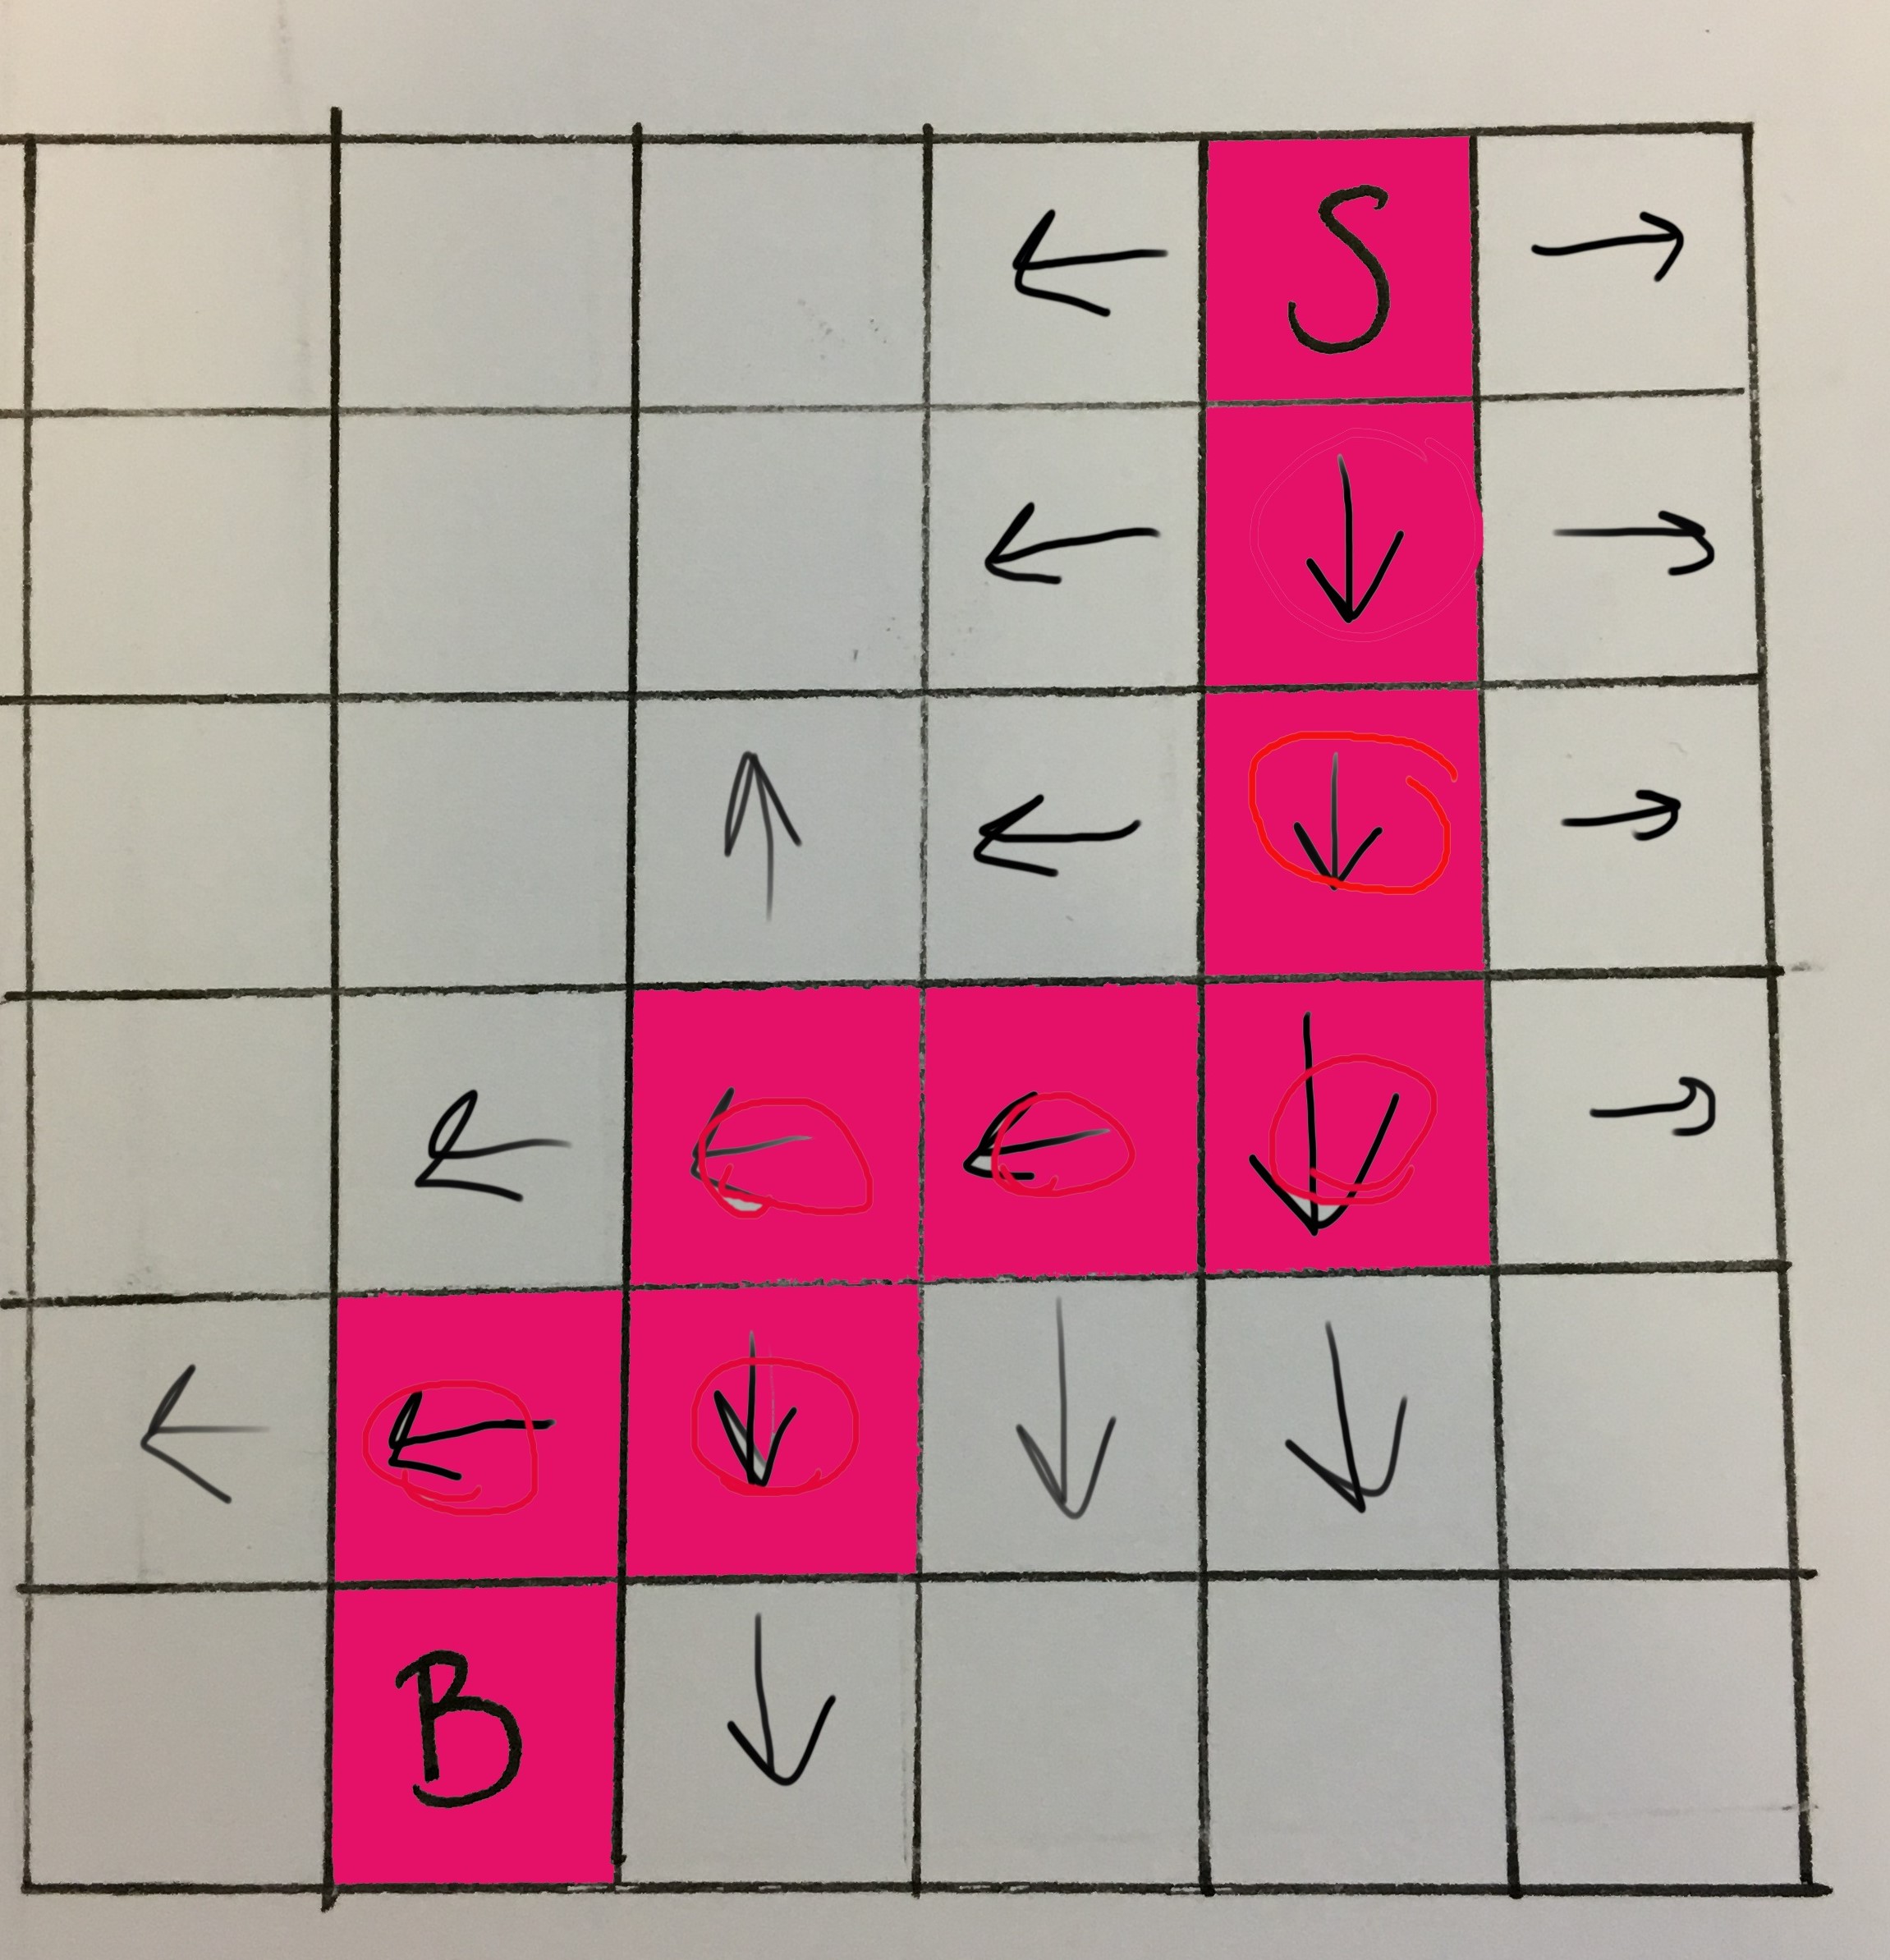 ← S →
← ↓ →
↑ ← ↓ →
← ← ← ↓ →
← ← ↓ ↓ ↓
B ↓